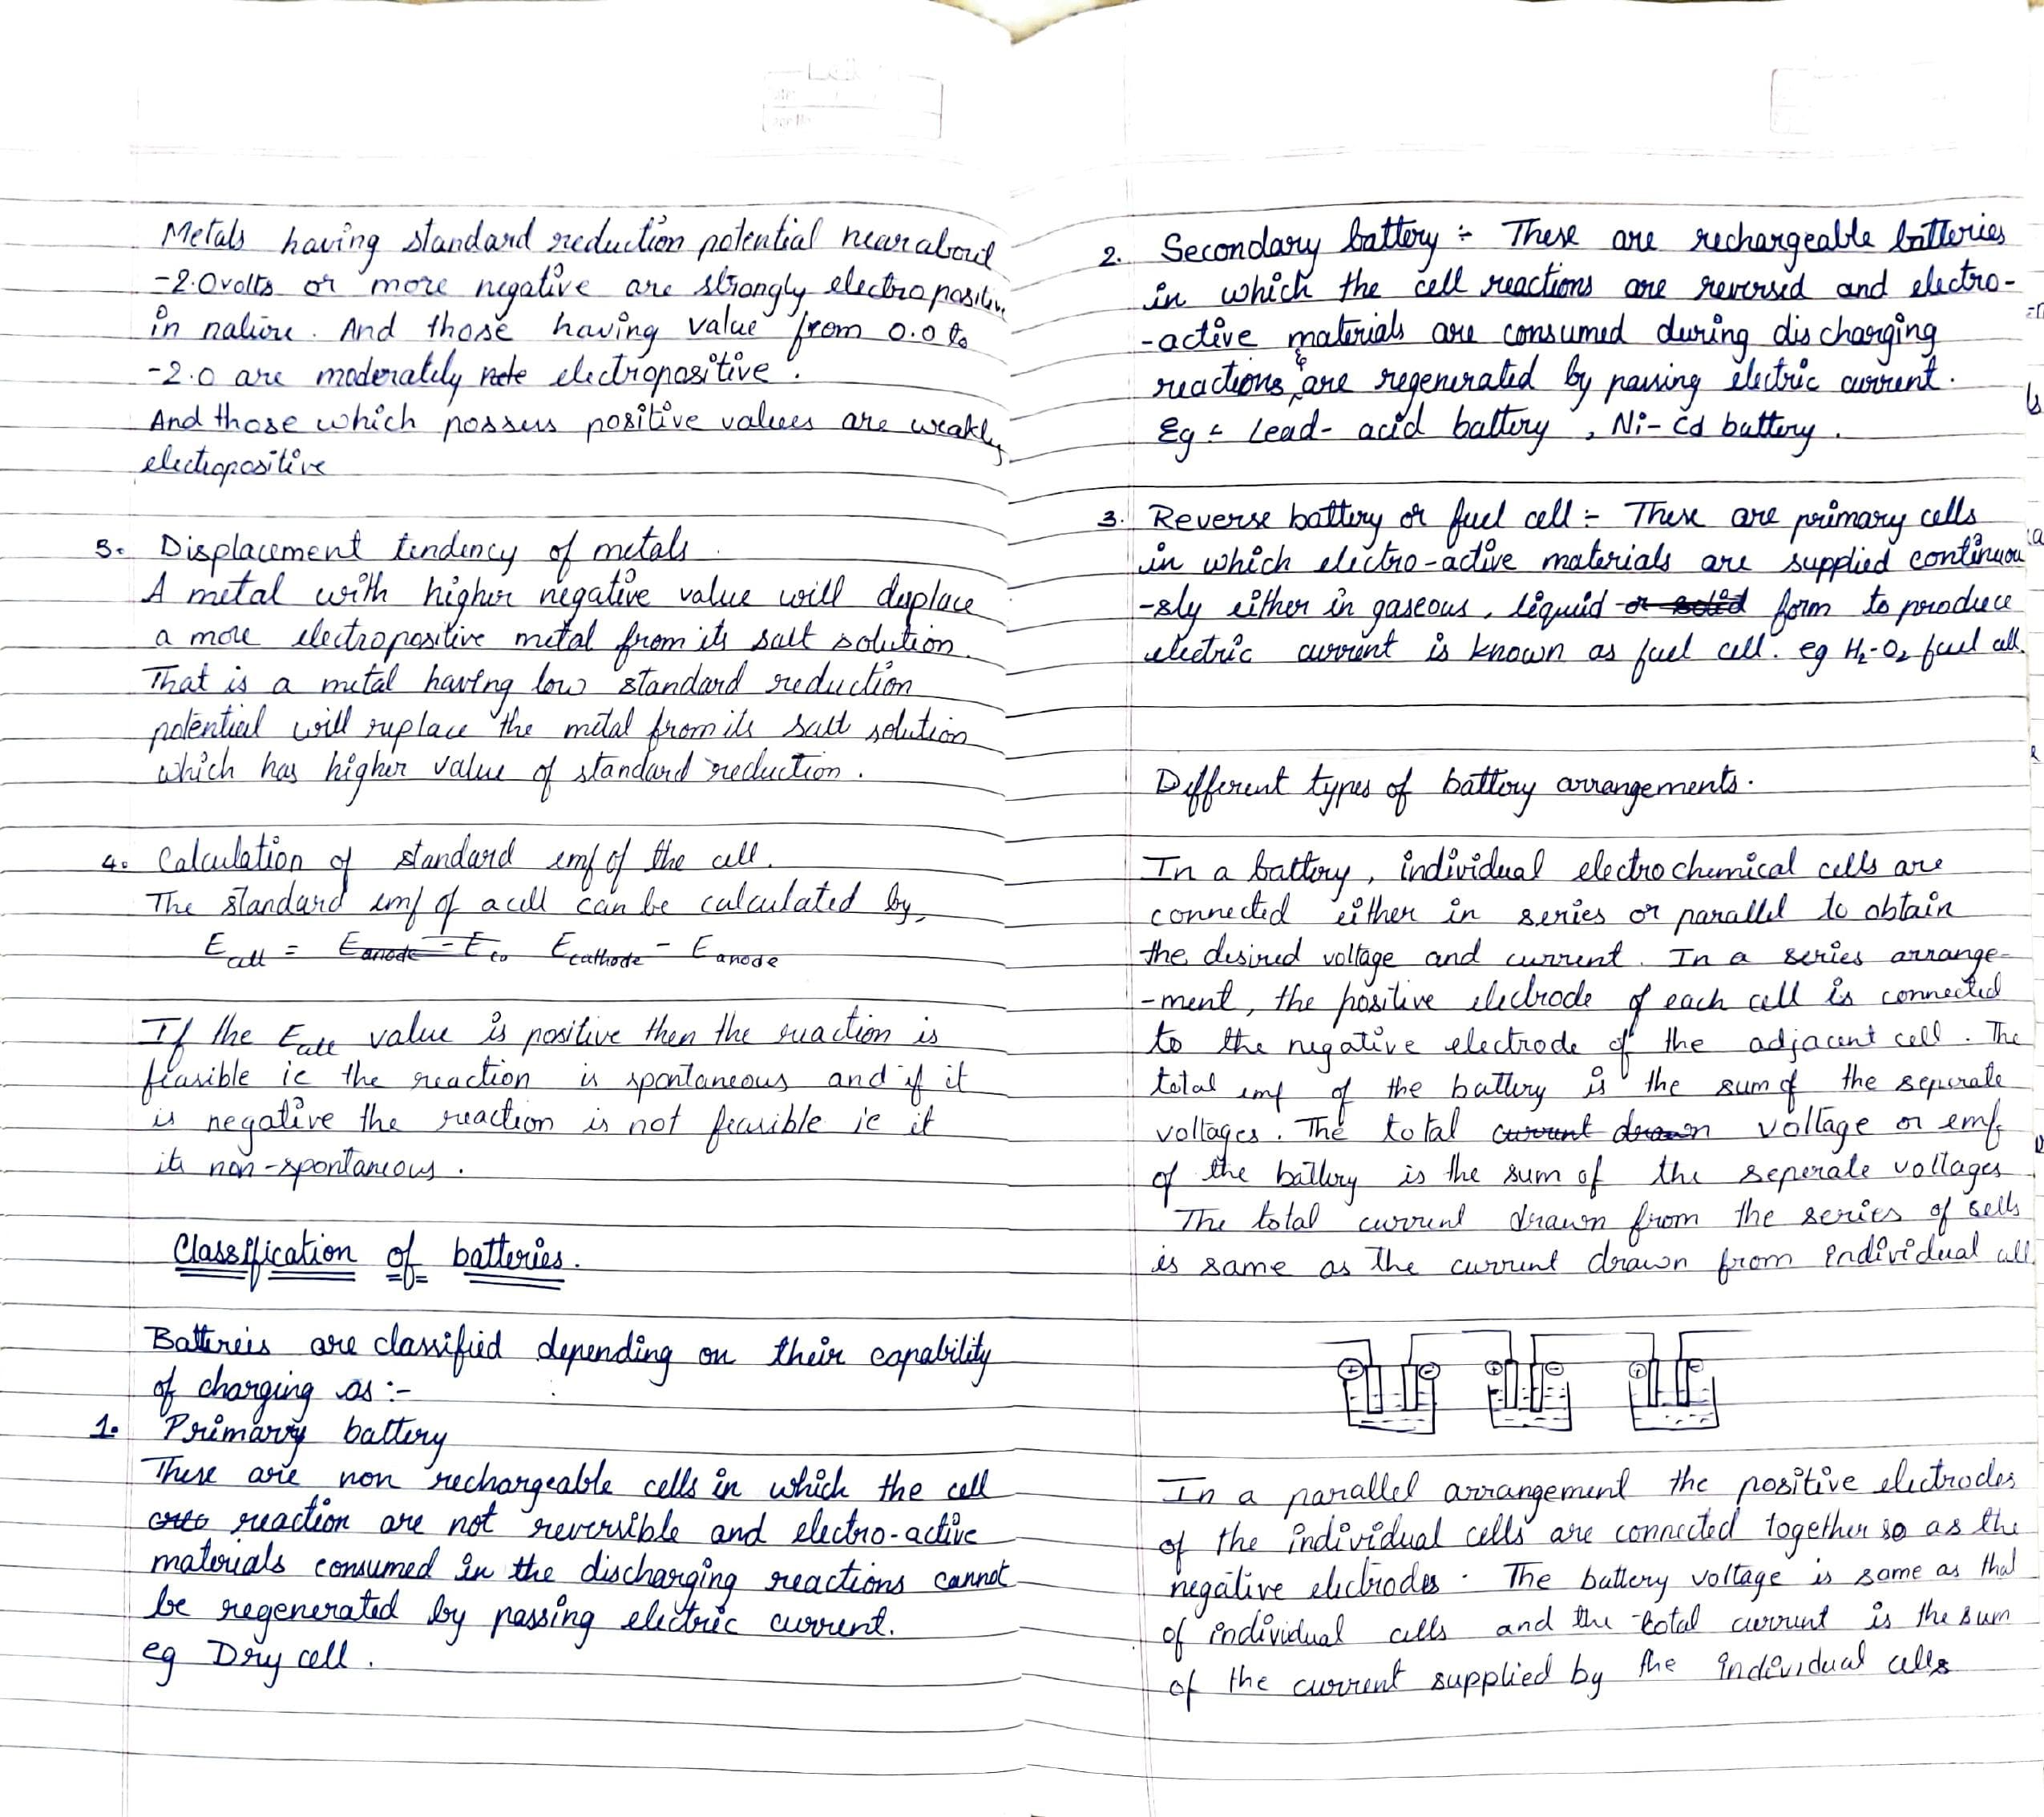 Metals having standard reduction potential near about
-2.0 volts or more negative are strongly electropositive
in nature. And those having value from 0.0 to
-2.0 are moderately electropositive.
And those which possess positive values are weakly
electropositive
3. Displacement tendency of metals.
A metal with higher negative value will displace
a more electropositive metal from its salt solution.
That is a metal having low standard reduction
potential will replace the metal from its salt solution
which has higher value of standard reduction.
4. Calculation of standard emf of the cell.
The standard emf of a cell can be calculated by,
E cell = E anode - E co E cathode - E anode
If the E cell value is positive then the reaction is
feasible ie the reaction is spontaneous and if it
is negative the reaction is not feasible ie it
its non-spontaneous.
Classification of batteries.
Battereis are classified depending on their capability
of charging as :-
1. Primary battery
These are non rechargeable cells in which the cell
reaction are not reversible and electro-active
materials consumed in the discharging reactions cannot
be regenerated by passing electric current.
eg Dry cell.
2. Secondary battery :- These are rechargeable batteries
in which the cell reactions are reversed and electro-
-active materials are consumed during discharging
reactions & are regenerated by passing electric current.
Eg :- Lead-acid battery, Ni-Cd battery.
3. Reverse battery or fuel cell :- These are primary cells
in which electro-active materials are supplied continuou
-sly either in gaseous, liquid or solid form to produce
electric current is known as fuel cell. eg H2-O2 fuel cell.
Different types of battery arrangements.
In a battery, individual electrochemical cells are
connected either in series or parallel to obtain
the desired voltage and current. In a series arrange-
-ment, the positive electrode of each cell is connected
to the negative electrode of the adjacent cell. The
total emf of the battery is the sum of the seperate
voltages. The total current drawn voltage or emf
of the battery is the sum of the seperate voltages
The total current drawn from the series of cells
is same as the current drawn from individual cell.
+ - + - + -
In a parallel arrangement the positive electrodes
of the individual cells are connected together so as the
negative electrodes. The battery voltage is same as that
of individual cells and the total current is the sum
of the current supplied by the individual cells